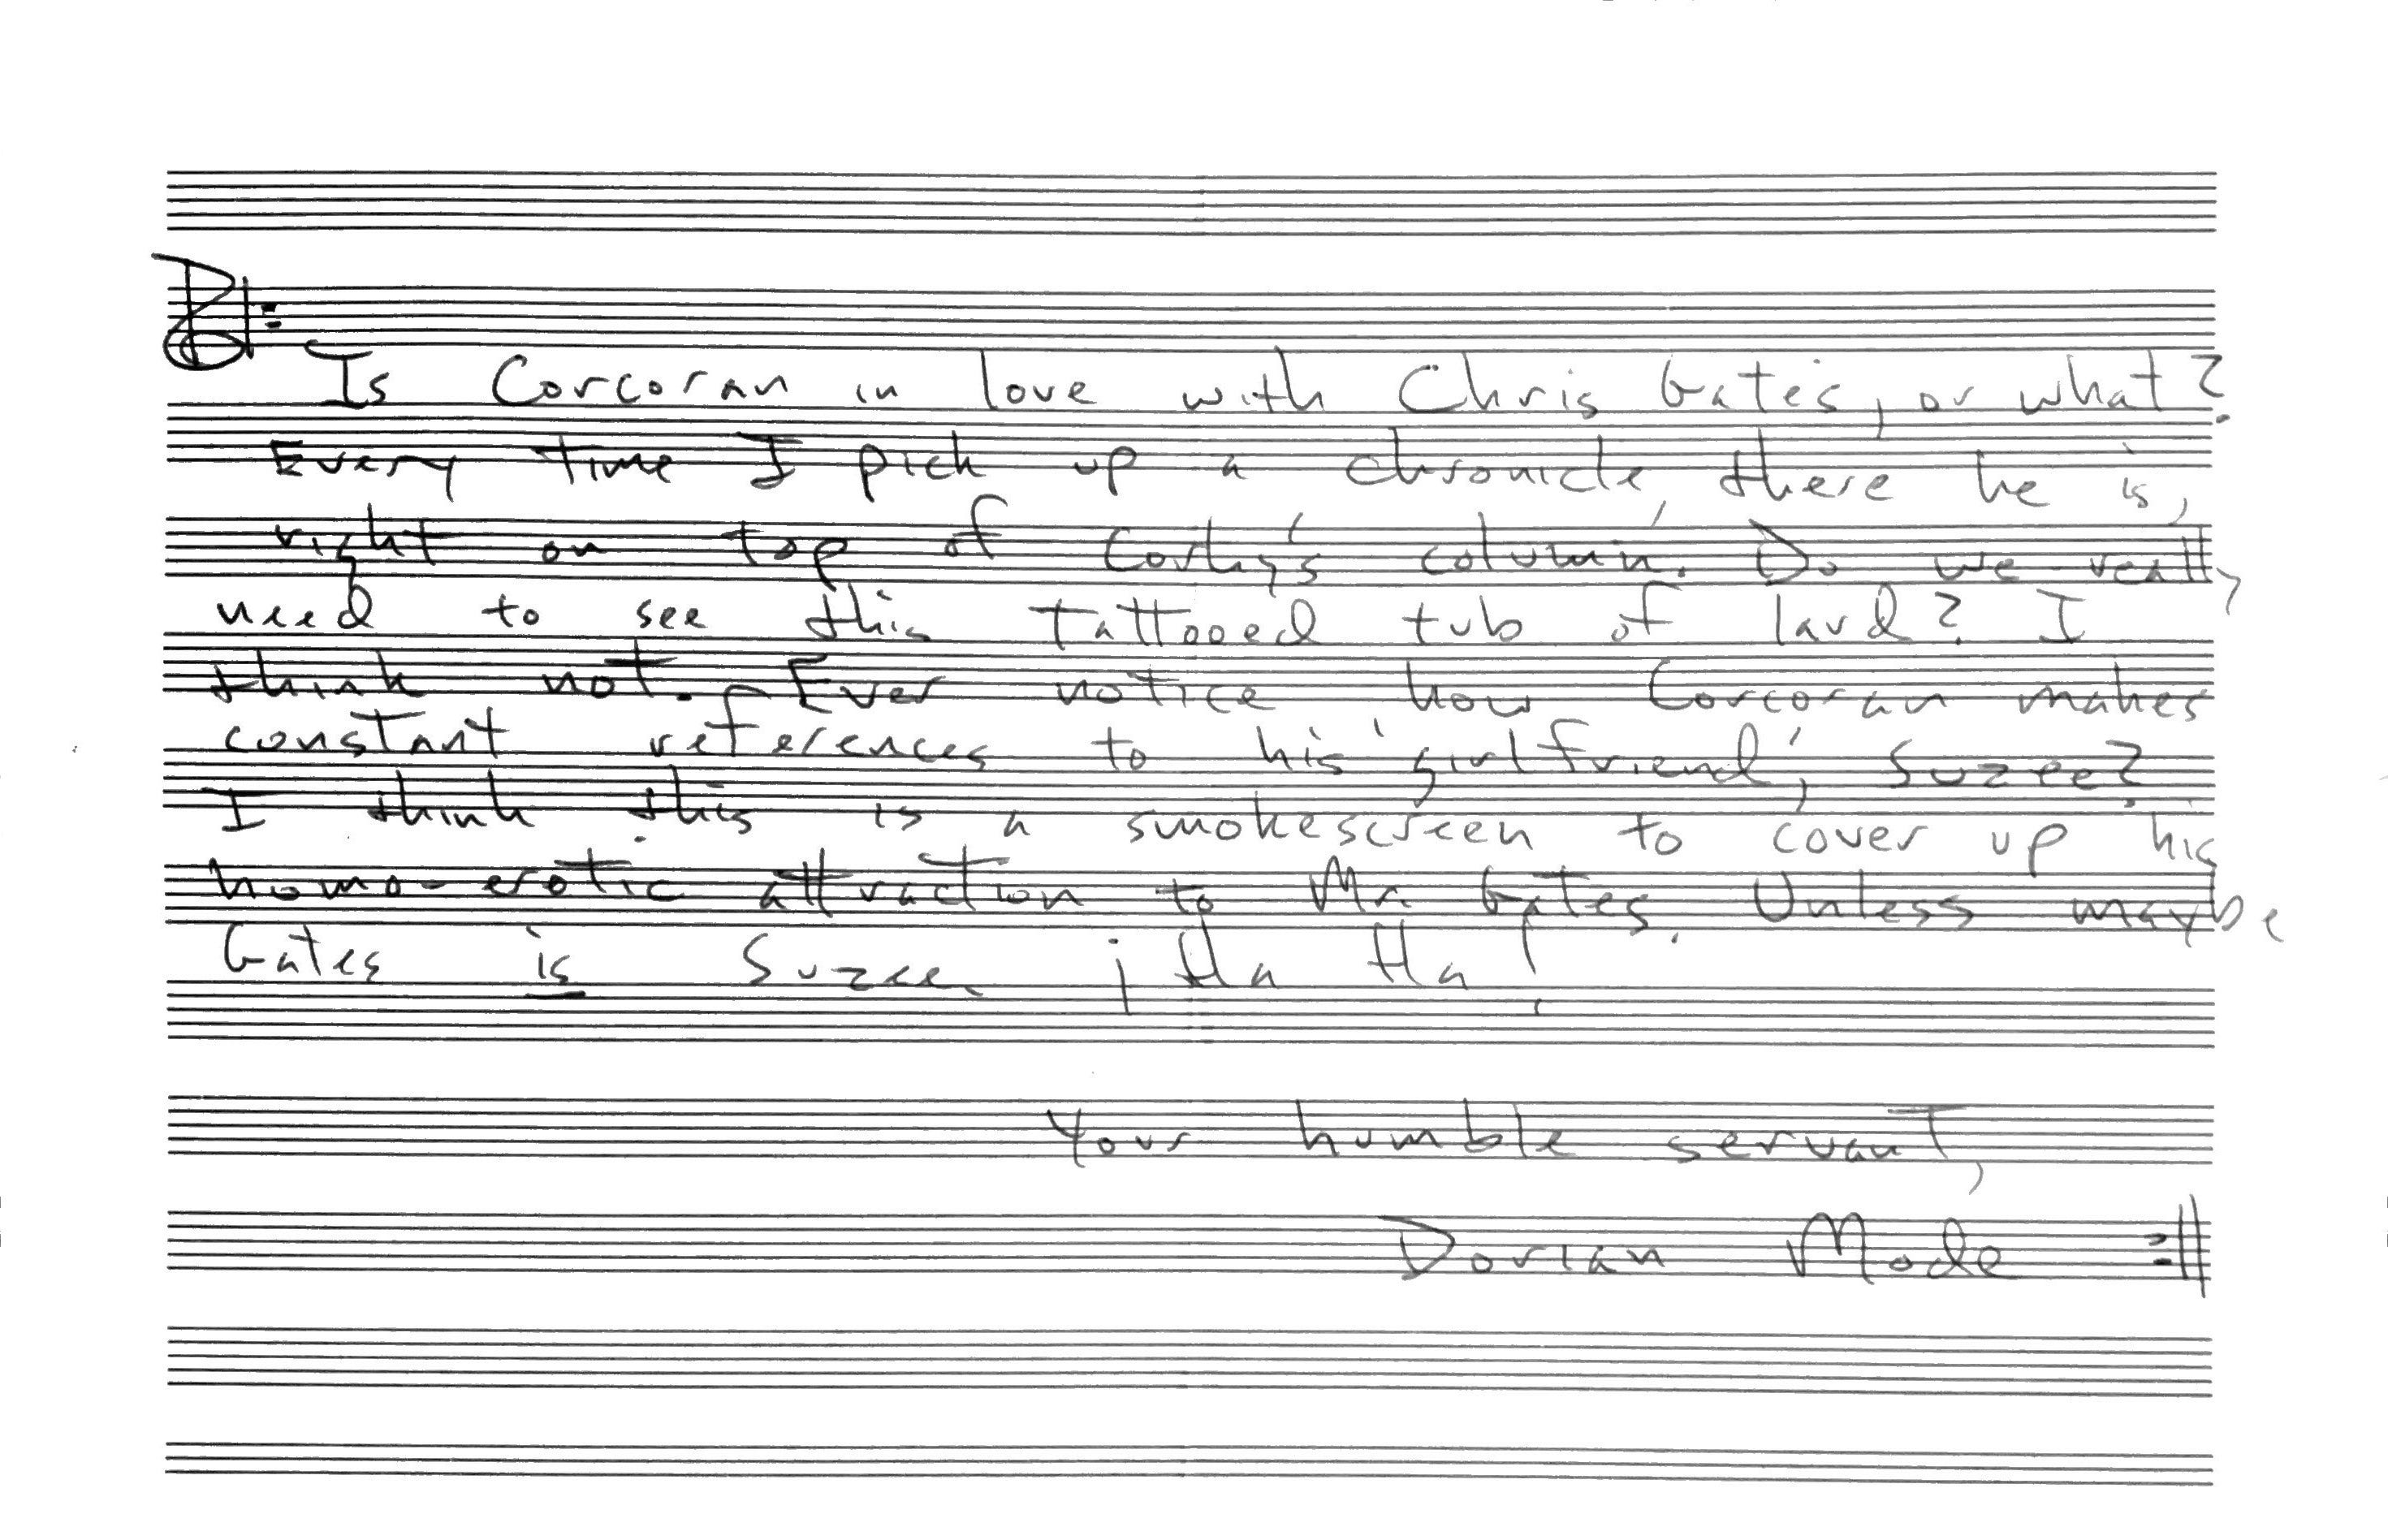 Is Corcoran in love with Chris Gates, or what?
Every time I pick up a Chronicle, there he is,
right on top of Corky's column. Do we really
need to see this tattooed tub of lard? I
think not. Ever notice how Corcoran makes
constant references to his 'girlfriend', Suzee?
I think this is a smokescreen to cover up his
homo-erotic attraction to Mr. Gates. Unless maybe
Gates is Suzee. ¡Ha Ha!
Your humble servant,
Dorian Mode